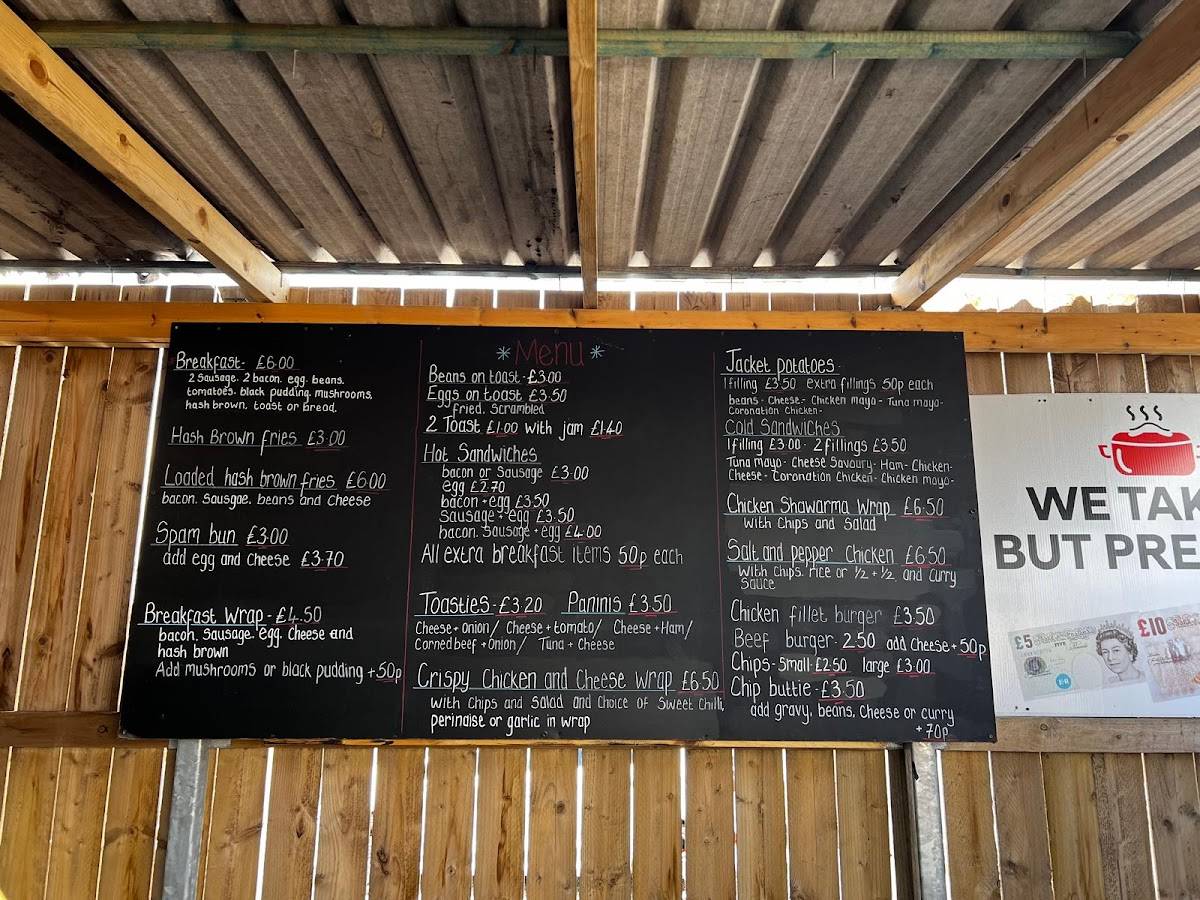 Breakfast- £6.00
2 Sausage. 2 bacon. egg. beans.
tomatoes. black pudding. mushrooms.
hash brown. toast or bread.
Hash Brown fries £3.00
Loaded hash brown fries £6.00
bacon. sausgae. beans and cheese
Spam bun £3.00
add egg and cheese £3.70
Breakfast Wrap - £4.50
bacon. Sausage. egg. Cheese and
hash brown
Add mushrooms or black pudding +50p
*Menu*
Beans on toast - £3.00
Eggs on toast £3.50
fried. scrambled
2 Toast £1.00 with jam £1.40
Hot Sandwiches
bacon or Sausage £3.00
egg £2.70
bacon + egg £3.50
Sausage + egg £3.50
bacon. Sausage + egg £4.00
All extra breakfast items 50p each
Toasties - £3.20 Paninis £3.50
Cheese + onion/ Cheese + tomato/ Cheese + Ham/
Corned beef + Onion/ Tuna + Cheese
Crispy Chicken and Cheese Wrap £6.50
with Chips and Salad and Choice of Sweet Chilli,
perinaise or garlic in wrap
Jacket potatoes
1 filling £3.50 extra fillings 50p each
beans - Cheese - Chicken mayo - Tuna mayo -
Coronation Chicken -
Cold Sandwiches
1 filling £3.00 - 2 fillings £3.50
Tuna mayo - Cheese Savoury - Ham - Chicken -
Cheese - Coronation Chicken - Chicken mayo -
Chicken Shawarma Wrap £6.50
with Chips and Salad
Salt and pepper Chicken £6.50
with chips. rice or 1/2 + 1/2 and Curry
Sauce
Chicken fillet burger £3.50
Beef burger - 2.50 add Cheese + 50p
Chips - Small £2.50 large £3.00
Chip buttie - £3.50
add gravy, beans, Cheese or curry
+ 70p
WE TAK
BUT PRE
£5 £10